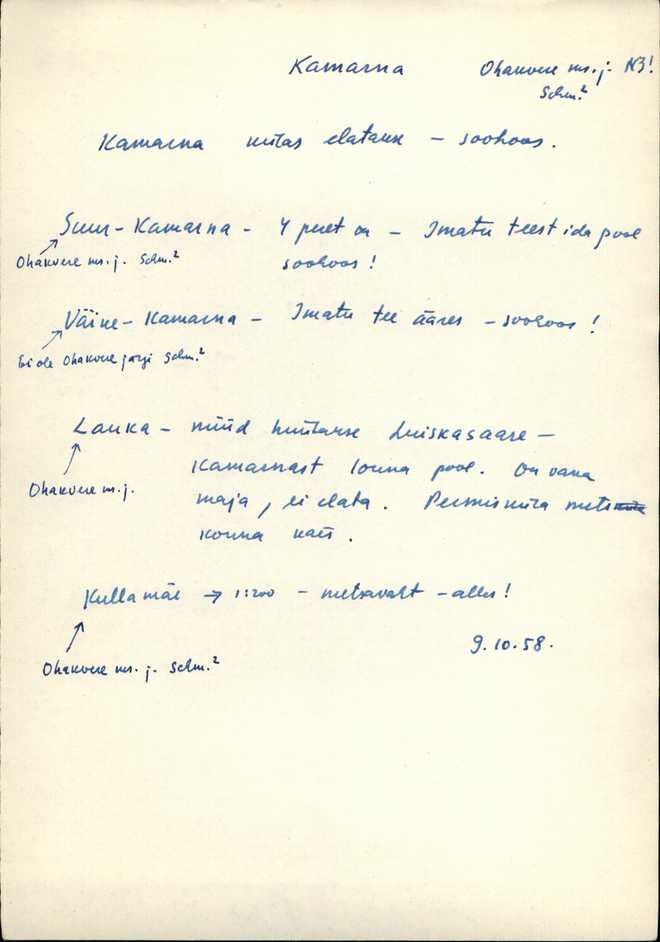 Kamarna Ohakvere ms. j. N3!
Schm.²
Kamarna külas elatakse – soohoos.
Suur-Kamarna – 4 peret on – Imatu teest ida pool
Ohakvere ms. j. Schm.² soohoos!
Väike-Kamarna – Imatu tee ääres – soohoos!
Ei ole Ohakvere järgi Schm.²
Lauka – nüüd hüütakse Luiskasaare –
Kamarnast lõuna pool. On vana
Ohakvere ms. j.
maja, ei elata. Permisküla
konna
Kullamäe → 1:200 – metsavaht – alles!
9.10.58.
Ohakvere ms. j. Schm.²